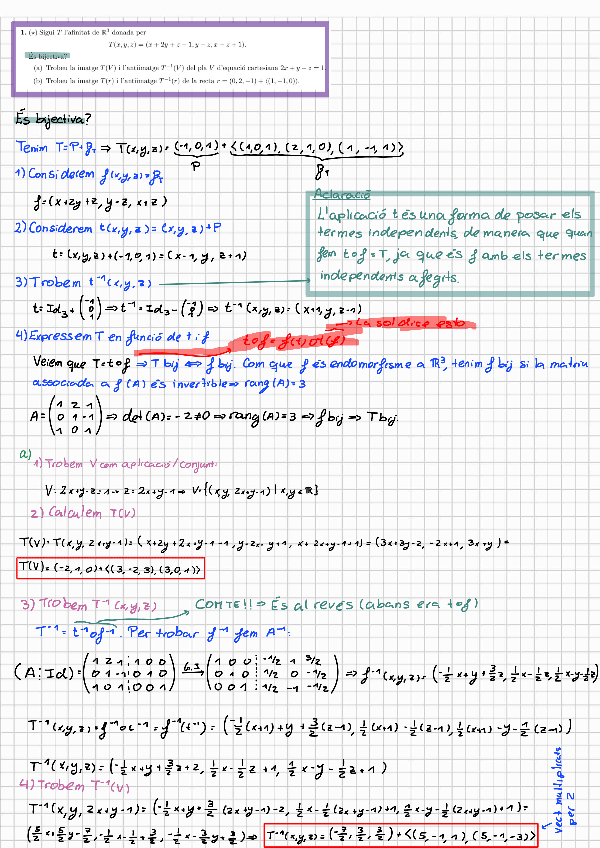 1. (*) Sigui T l'afinitat de ℝ³ donada per
T(x, y, z) = (x + 2y + z − 1, y − z, x + z + 1).
És bijectiva?
(a) Trobeu la imatge T(V) i l'antiimatge T⁻¹(V) del pla V d'equació cartesiana 2x + y − z = 1.
(b) Trobeu la imatge T(r) i l'antiimatge T⁻¹(r) de la recta r = (0, 2, −1) + ⟨(1, −1, 0)⟩.
És bijectiva?
Tenim T=P+f_T ⇒ T(x,y,z)=(-1,0,1)+<(1,0,1),(2,1,0),(1,-1,1)>
P
1) Considerem f(x,y,z)=
f=(x+2y+z, y-z, x+z)
2) Considerem t(x,y,z)=(x,y,z)+P
t=(x,y,z)+(-1,0,1)=(x-1,y,z+1)
Aclaració
L'aplicació t és una forma de posar els
termes independents, de manera que quan
fem tof=T, ja que és f amb els termes
independents afegits.
3) Trobem t⁻¹(x,y,z)
t=Id₃+(-1 0 1) ⇒ t⁻¹=Id₃-(-1 0 1) ⇒ t⁻¹(x,y,z)=(x+1,y,z-1)
4) Expressem T en funció de t i f
Veiem que T=tof ⇒ T bij ⇔ f bij. Com que f és endomorfisme a ℝ³, tenim f bij si la matriu
associada a f (A) és invertible ⇒ rang(A)=3
A=(1 2 1
0 1 -1
1 0 1) ⇒ det(A)=-2≠0 ⇒ rang(A)=3 ⇒ f bij ⇒ T bij.
a)
1) Trobem V com aplicació/conjunt:
V: 2x+y-z=1 → z=2x+y-1 ⇒ V={(x,y,2x+y-1) | x,y∈ℝ}
2) Calculem T(V)
T(V)=T(x,y,2x+y-1)=(x+2y+2x+y-1-1, y-2x-y+1, x+2x+y-1+1)=(3x+3y-2,-2x+1,3x+y)=
T(V)=(-2,1,0)+<(3,-2,3),(3,0,1)>
3) Trobem T⁻¹(x,y,z) COMTE!! ⇒ És al revés (abans era tof)
T⁻¹=t⁻¹of⁻¹. Per trobar f⁻¹ fem A⁻¹:
(A|Id)=(1 2 1 | 1 0 0
0 1 -1 | 0 1 0
1 0 1 | 0 0 1) → (1 0 0 | -1/2 1 3/2
0 1 0 | 1/2 0 -1/2
0 0 1 | 1/2 -1 -1/2) ⇒ f⁻¹(x,y,z)=(-1/2x+y+3/2z, 1/2x-1/2z, 1/2x-y-1/2z)
T⁻¹(x,y,z)=f⁻¹ot⁻¹=f⁻¹(t⁻¹)=(-1/2(x+1)+y+3/2(z-1), 1/2(x+1)-1/2(z-1), 1/2(x+1)-y-1/2(z-1))
T⁻¹(x,y,z)=(-1/2x+y+3/2z+2, 1/2x-1/2z+1, 1/2x-y-1/2z+1)
4) Trobem T⁻¹(V)
T⁻¹(x,y,2x+y-1)=(-1/2x+y+3/2(2x+y-1)-2, 1/2x-1/2(2x+y-1)+1, 1/2x-y-1/2(2x+y-1)+1)=
T⁻¹(x,y,z)=(-7/2,3/2,3/2)+<(5,-1,1),(5,-1,-3)>
vect multiplicats
per 2